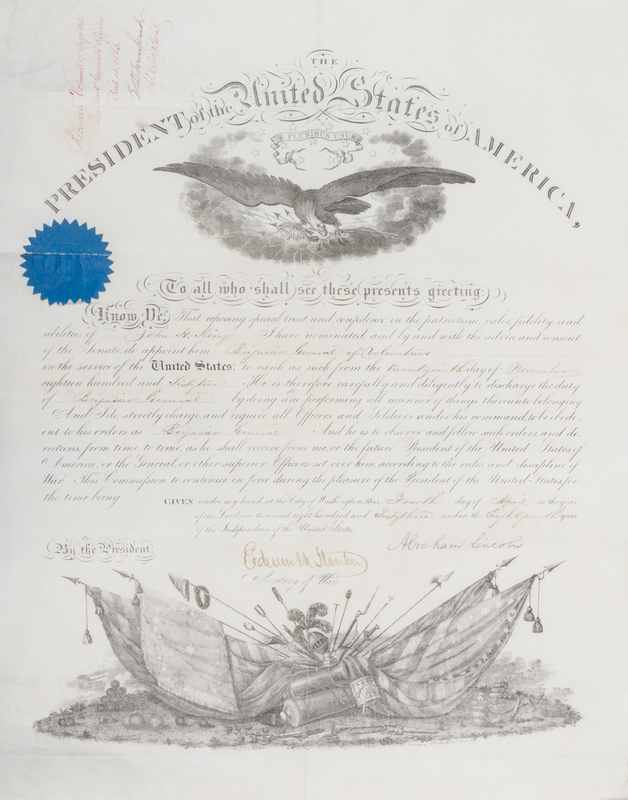 THE
PRESIDENT of the United States of AMERICA,
E PLURIBUS UNUM
To all who shall see these presents greeting:
Know Ye, That reposing special trust and confidence in the patriotism, valor, fidelity, and
abilities of John H. King I have nominated, and by and with the advice and consent
of the Senate, do appoint him Brigadier General of Volunteers
in the service of the United States: to rank as such from the twenty ninth day of November
eighteen hundred and Sixty two. He is therefore carefully and diligently to discharge the duty
of Brigadier General by doing and performing all manner of things thereunto belonging.
And I do strictly charge, and require all Officers and Soldiers under his command, to be obedi-
ent to his orders as Brigadier General And he is to observe and follow such orders, and di-
rections, from time to time, as he shall receive from me, or the future President of the United States of
America, or the General, or other superior Officers set over him, according to the rules and discipline of
War. This Commission to continue in force during the pleasure of the President of the United States, for
the time being
GIVEN under my hand, at the City of Washington, this Fourth day of April in the year
of our Lord, one thousand eight hundred and Sixty three and in the Eighty seventh year
of the Independence of the United States.
By the President,
Abraham Lincoln
Edwin M Stanton
Secretary of War